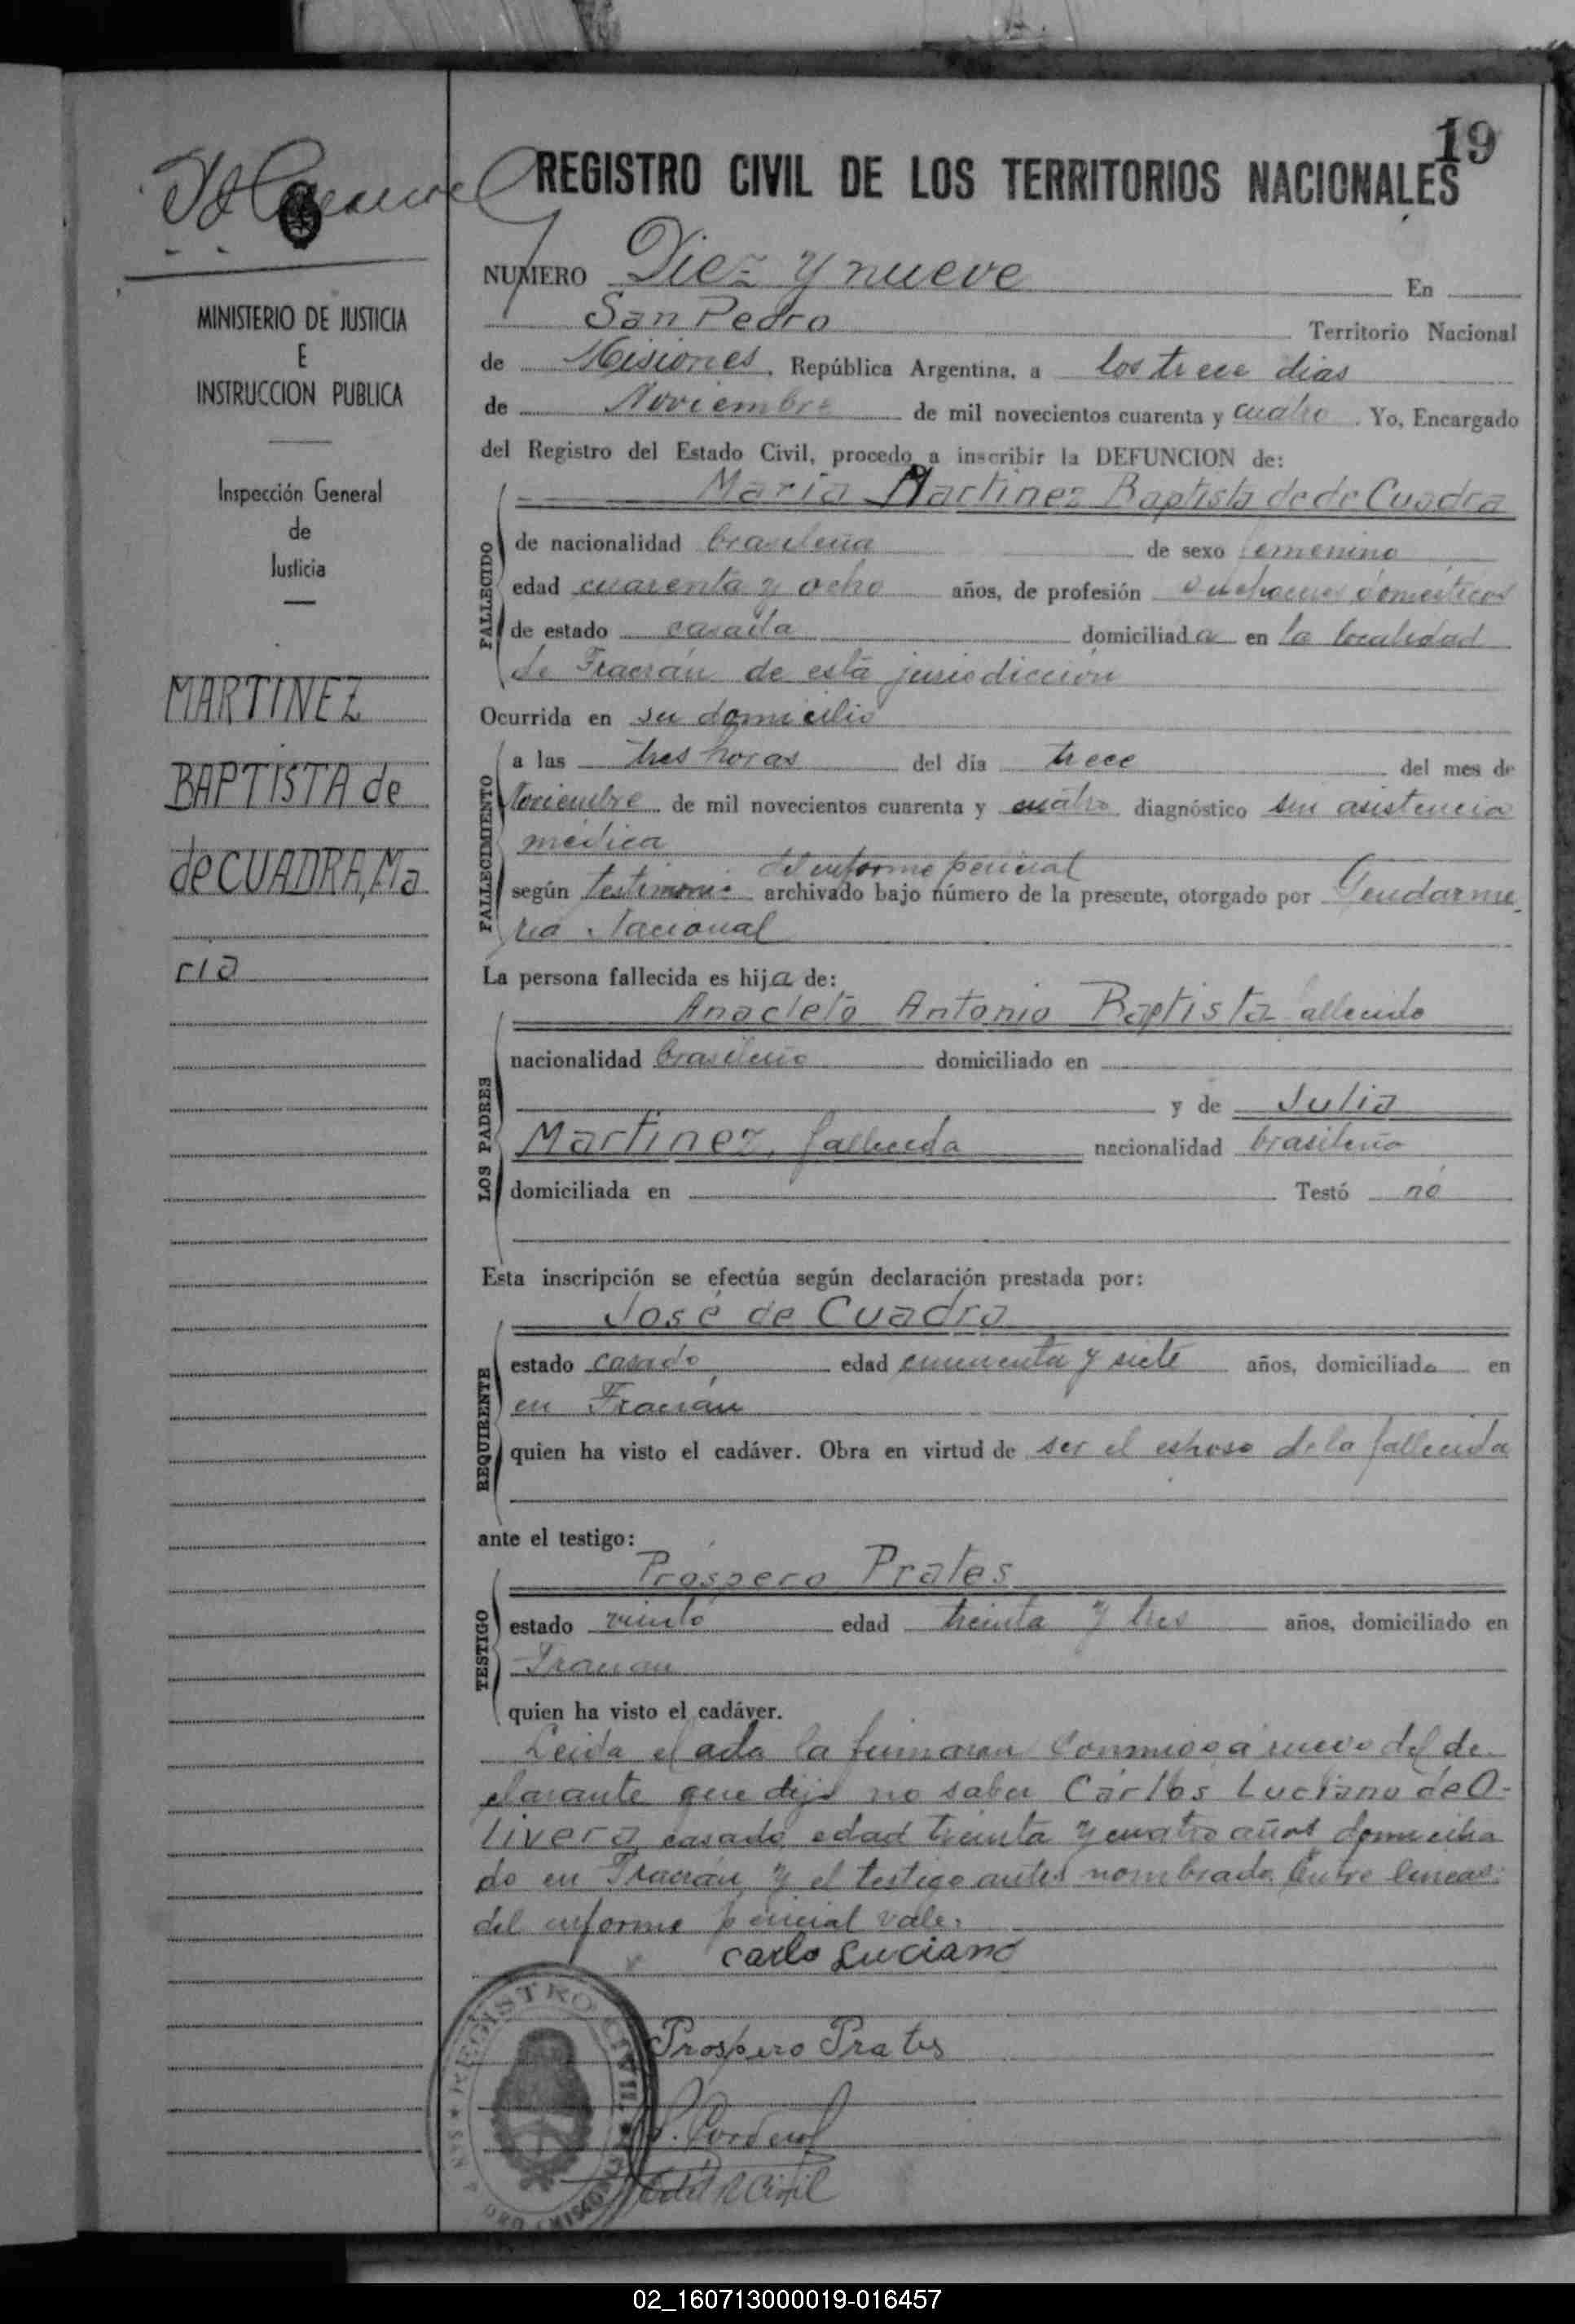 19
REGISTRO CIVIL DE LOS TERRITORIOS NACIONALES
MINISTERIO DE JUSTICIA
E
INSTRUCCION PUBLICA
Inspección General
de
Justicia
MARTINEZ
BAPTISTA de
de CUADRA, Ma
ria
NUMERO Diez y nueve En
San Pedro Territorio Nacional
de Misiones, República Argentina, a los trece dias
de Noviembre de mil novecientos cuarenta y cuatro. Yo, Encargado
del Registro del Estado Civil, procedo a inscribir la DEFUNCION de:
Maria Martinez Baptista de de Cuadra
FALLECIDO
de nacionalidad brasileña de sexo femenino
edad cuarenta y ocho años, de profesión quehaceres domésticos
de estado casada domiciliada en la localidad
de Fracrán de esta jurisdicción
Ocurrida en su domicilio
FALLECIMIENTO
a las tres horas del día trece del mes de
Noviembre de mil novecientos cuarenta y cuatro diagnóstico sin asistencia
médica
del informe pericial
según testimonio archivado bajo número de la presente, otorgado por Gendarme
ria Nacional
La persona fallecida es hija de:
LOS PADRES
Anacleto Antonio Baptista fallecido
nacionalidad brasileño domiciliado en
y de Julia
Martinez, fallecida nacionalidad brasileña
domiciliada en Testó nó
Esta inscripción se efectúa según declaración prestada por:
REQUIRENTE
José de Cuadra
estado casado, edad cincuenta y siete años, domiciliado en
en Fracrán
quien ha visto el cadáver. Obra en virtud de ser el esposo de la fallecida
ante el testigo:
TESTIGO
Próspero Prates
estado viudo edad treinta y tres años, domiciliado en
Fracran
quien ha visto el cadáver.
Leida el acta la firmaron conmigo a ruego del de
clarante que dijo no saber Cárlos Luciano de O-
livera casado edad treinta y cuatro años domicilia
do en Fracrán y el testigo antes nombrado. Entre lineas:
del informe pericial vale.
carlo Luciano
Prospero Prates
REGISTRO CIVIL
R Civil
02_160713000019-016457